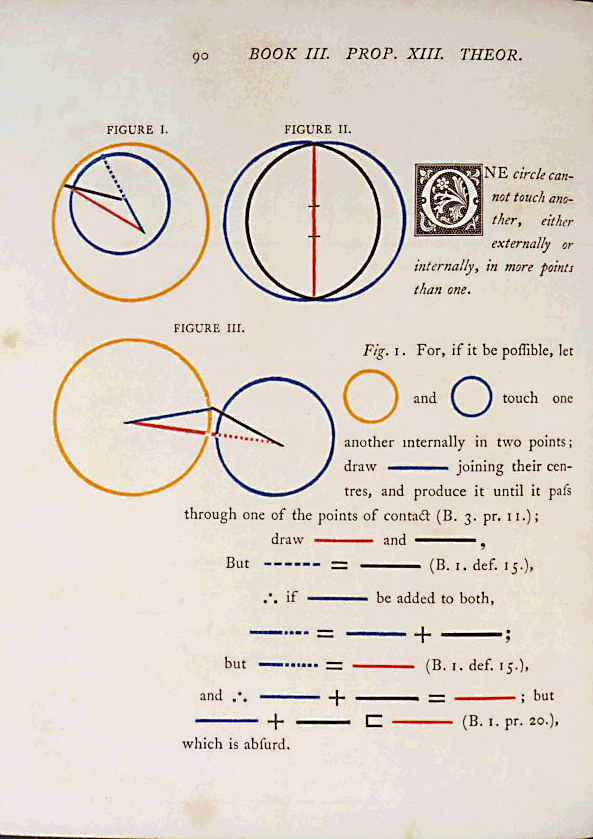 90 BOOK III. PROP. XIII. THEOR.
FIGURE I.
FIGURE II.
ONE circle can-
not touch ano-
ther, either
externally or
internally, in more points
than one.
FIGURE III.
Fig. 1. For, if it be poſſible, let
and touch one
another internally in two points;
draw joining their cen-
tres, and produce it until it paſs
through one of the points of contact (B. 3. pr. 11.);
draw and ,
But = (B. 1. def. 15.),
∴ if be added to both,
= + ;
but = (B. 1. def. 15.),
and ∴ + = ; but
+ ⊏ (B. 1. pr. 20.),
which is abſurd.